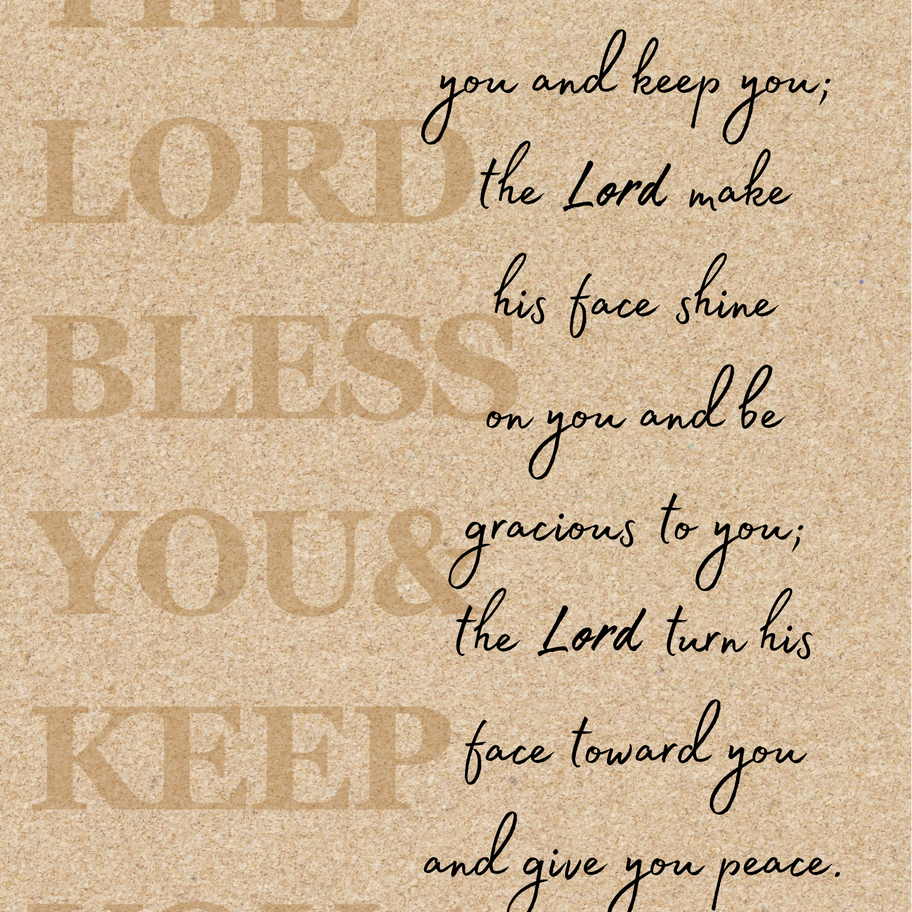 THE
LORD
BLESS
YOU&
KEEP
YOU
you and keep you;
the Lord make
his face shine
on you and be
gracious to you;
the Lord turn his
face toward you
and give you peace.